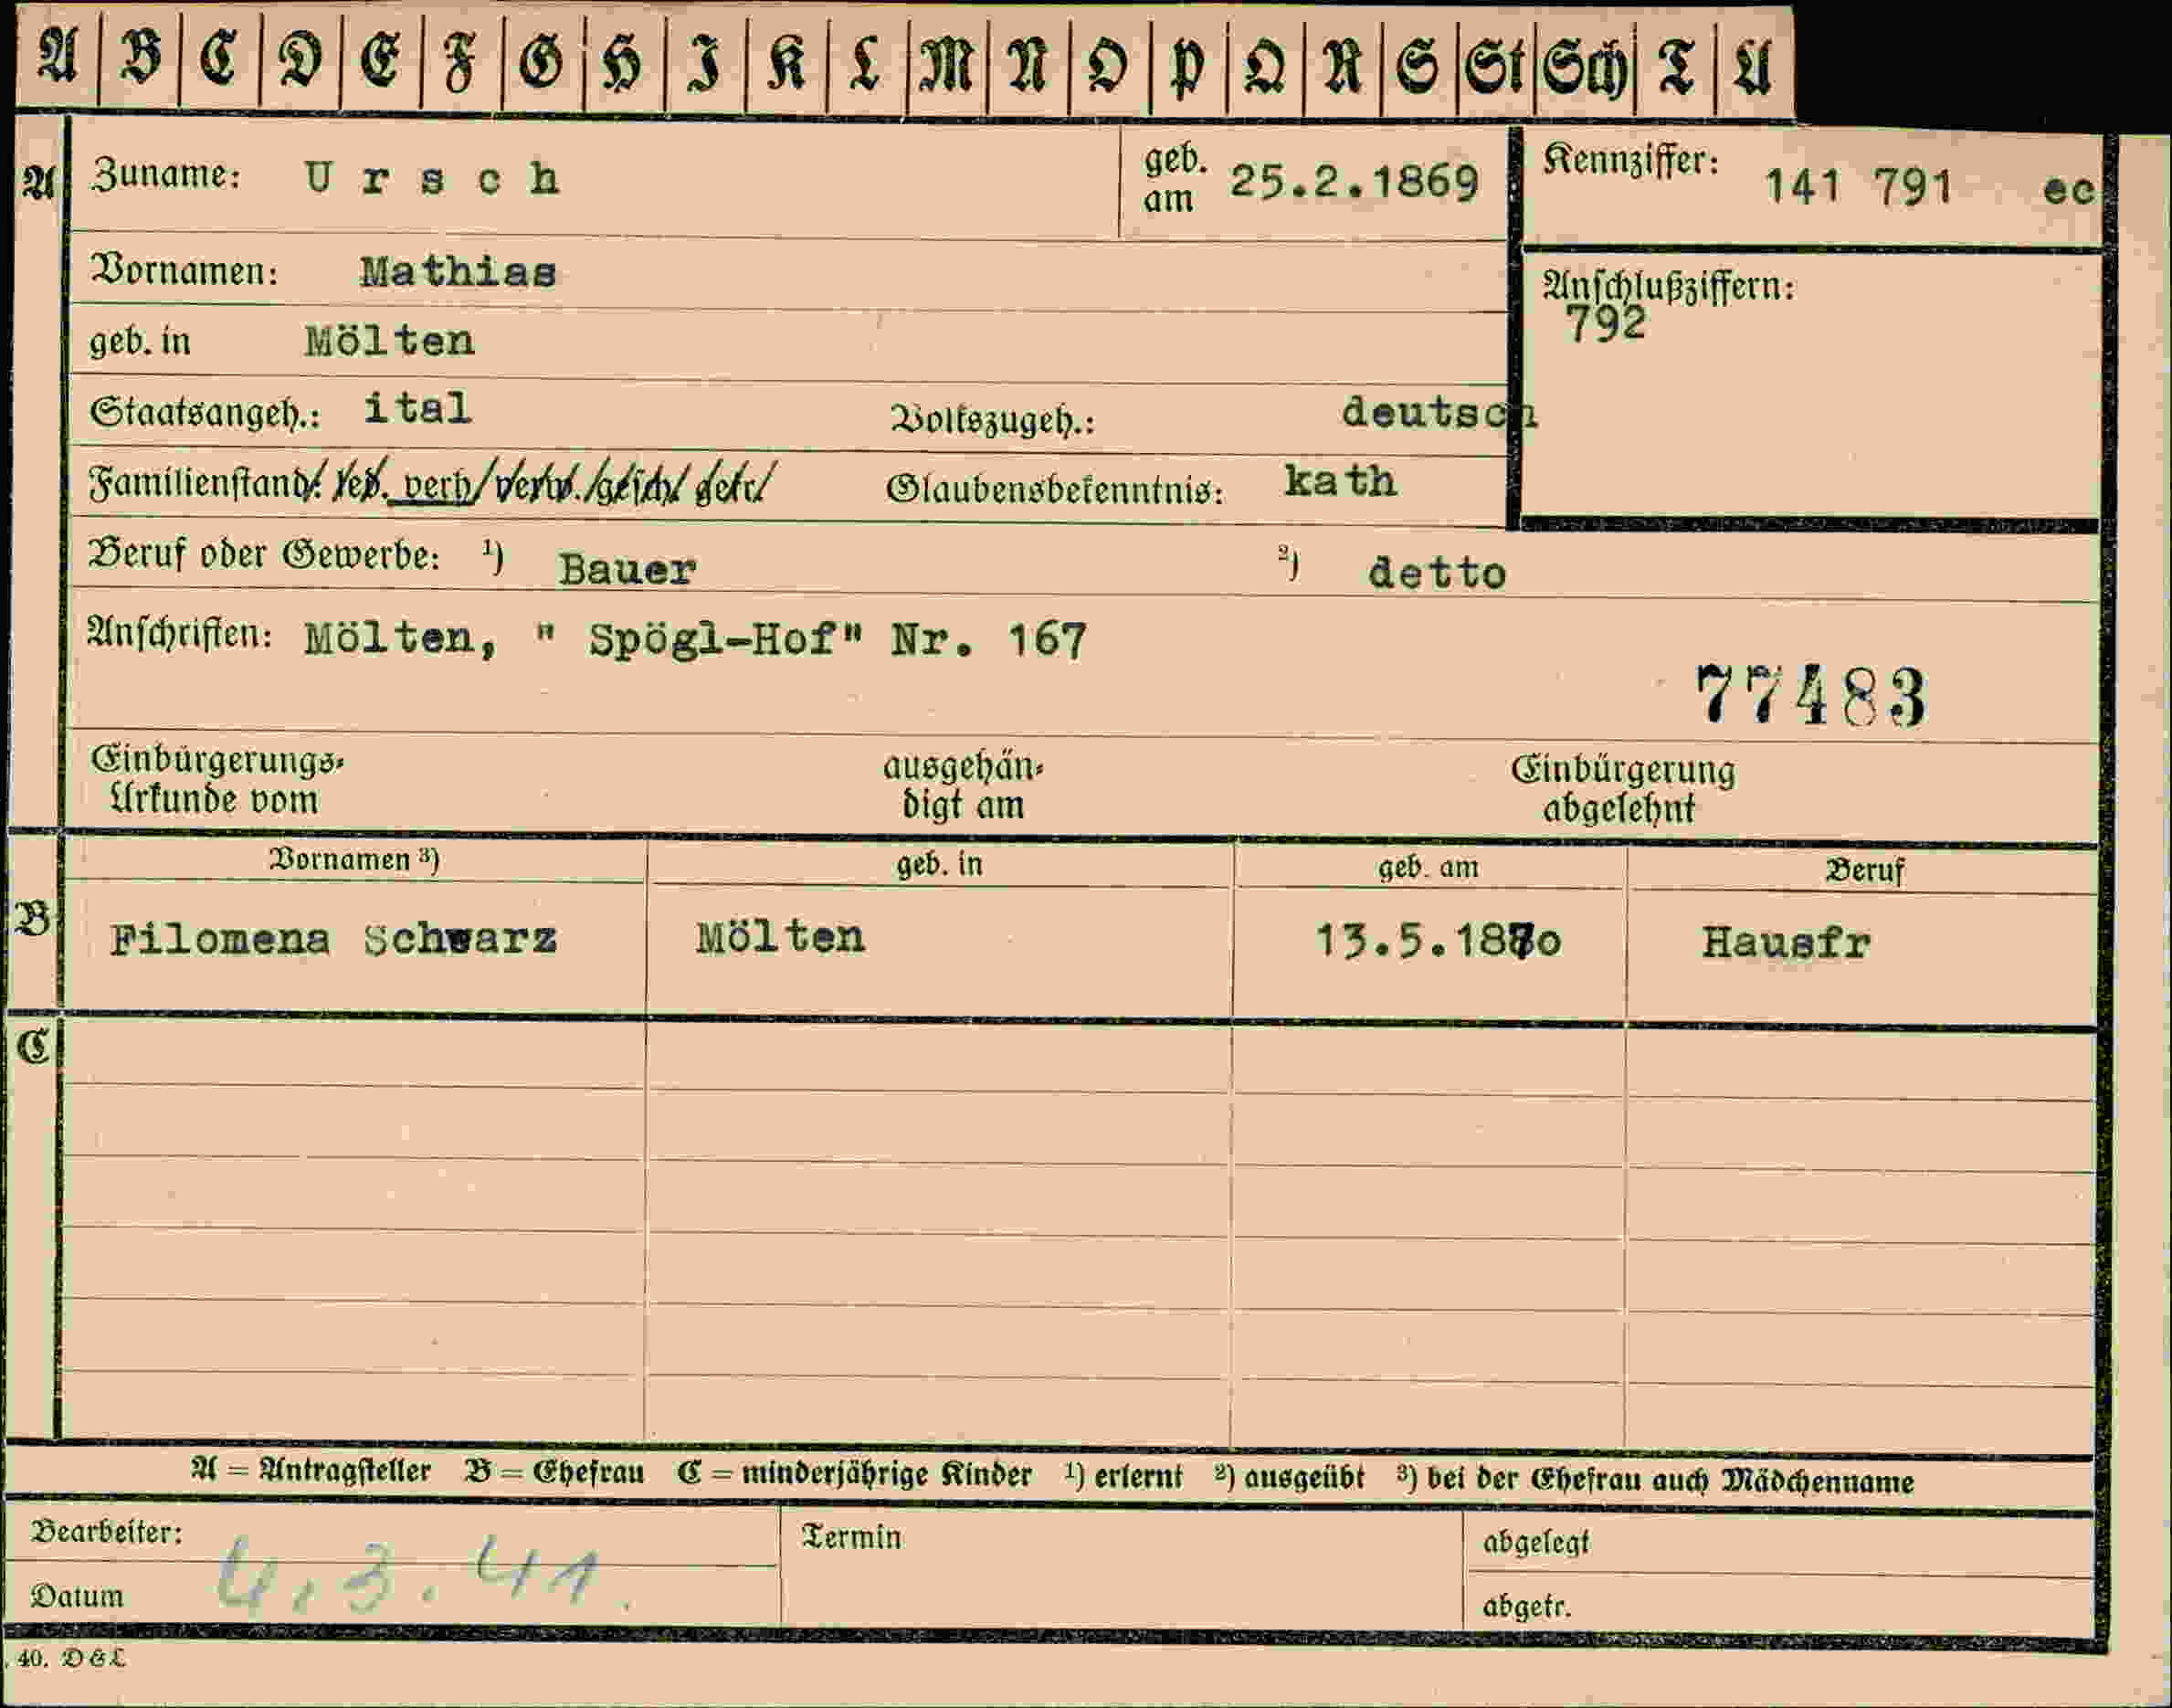 A B C D E F G H I K L M N O P Q R S St Sch T U
A Zuname: Ursch geb. am 25.2.1869 Kennziffer: 141 791 ec
Vornamen: Mathias
Anschlußziffern:
792
geb. in Mölten
Staatsangeh.: ital Volkszugeh.: deutsch
Familienstand: led. verh/ verw./gesch/ getr/ Glaubensbekenntnis: kath
Beruf oder Gewerbe: ¹) Bauer ²) detto
Anschriften: Mölten, " Spögl-Hof" Nr. 167
77483
Einbürgerungs-
Urkunde vom
ausgehän-
digt am
Einbürgerung
abgelehnt
Vornamen ³) geb. in geb. am Beruf
B Filomena Schwarz Mölten 13.5.1870 Hausfr
C
A = Antragsteller B = Ehefrau C = minderjährige Kinder ¹) erlernt ²) ausgeübt ³) bei der Ehefrau auch Mädchenname
Bearbeiter: Termin abgelegt
Datum 4.3.41. abgetr.
40. D&L